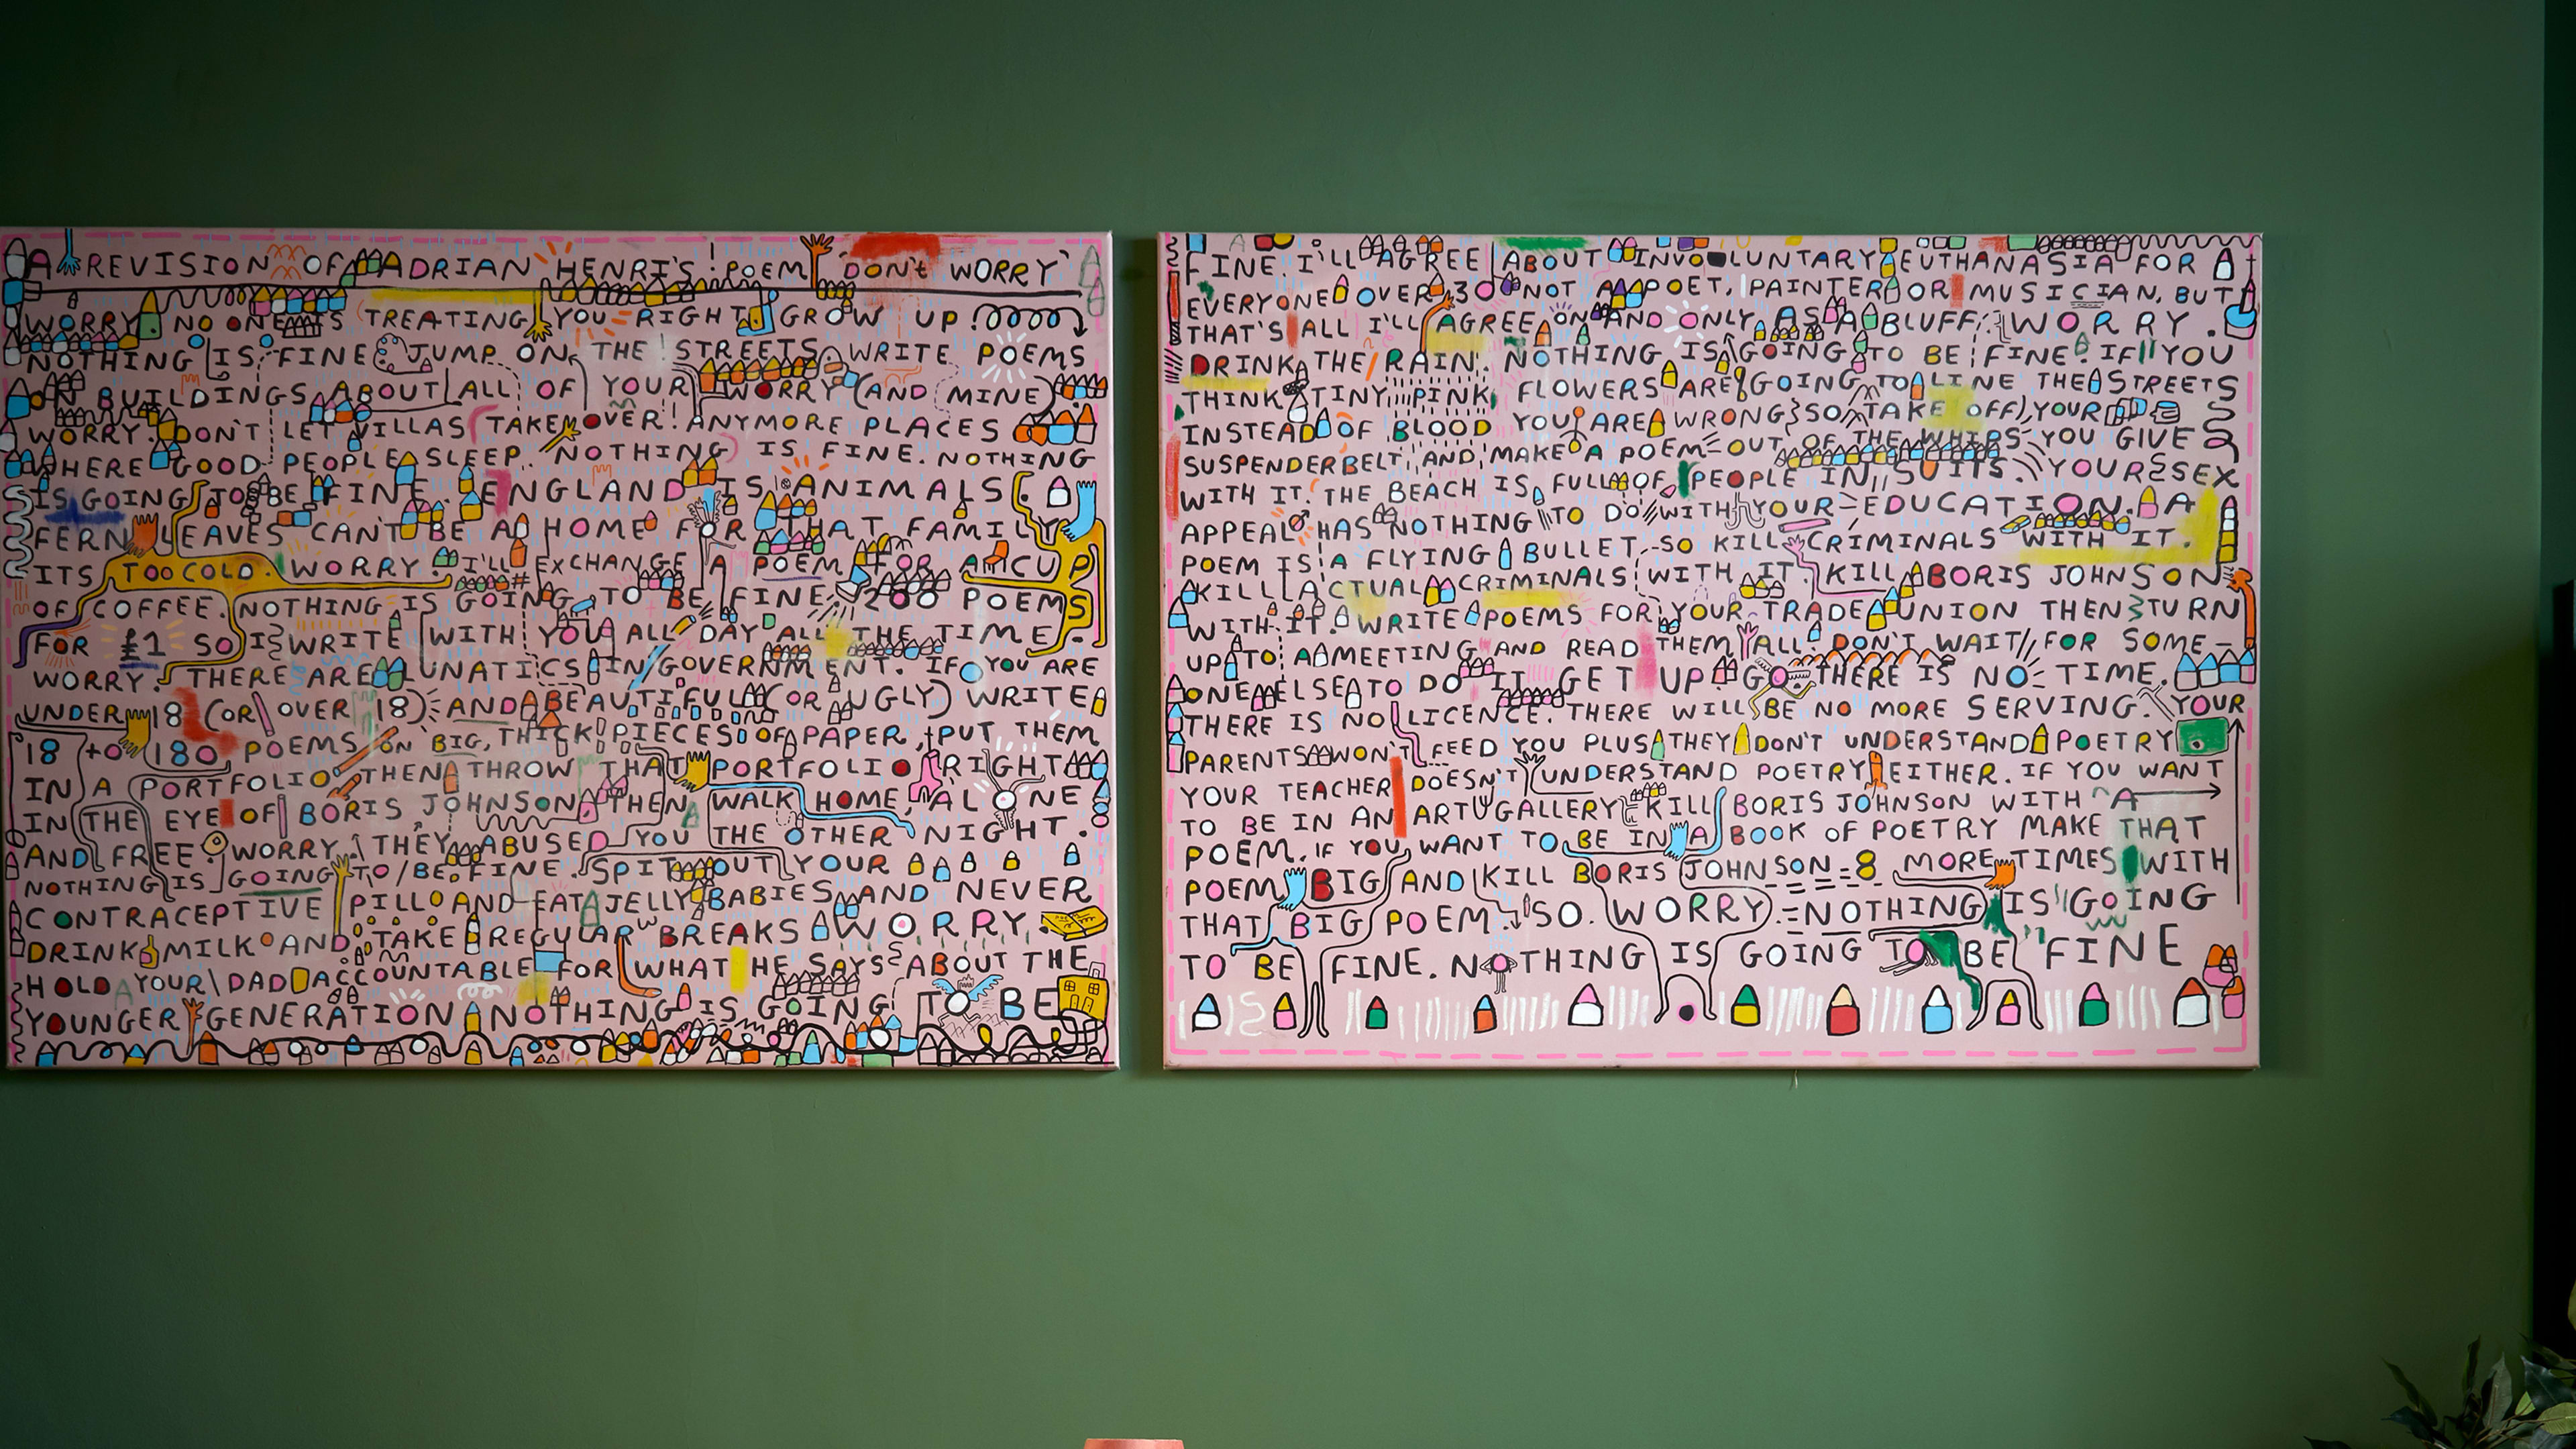 A REVISION OF ADRIAN HENRI'S POEM 'DON'T WORRY'
WORRY NO ONE IS TREATING YOU RIGHT GROW UP
NOTHING IS FINE JUMP ON THE STREETS WRITE POEMS
ON BUILDINGS ABOUT ALL OF YOUR WORRY (AND MINE)
WORRY. DON'T LET VILLAS TAKE OVER! ANYMORE PLACES
WHERE GOOD PEOPLE SLEEP. NOTHING IS FINE. NOTHING
IS GOING TO BE FINE. ENGLAND IS ANIMALS
FERN LEAVES CAN'T BE A HOME FOR THAT FAMILY
ITS TOO COLD. WORRY. I'LL EXCHANGE A POEM FOR A CUP
OF COFFEE. NOTHING IS GOING TO BE FINE 200 POEMS
FOR £1 SO I WRITE WITH YOU ALL DAY ALL THE TIME.
WORRY. THERE ARE LUNATICS IN GOVERNMENT. IF YOU ARE
UNDER 18 (OR OVER 18) AND BEAUTIFUL (OR UGLY) WRITE
18 TO 180 POEMS ON BIG, THICK PIECES OF PAPER, PUT THEM
IN A PORTFOLIO THEN THROW THAT PORTFOLIO RIGHT
IN THE EYE OF BORIS JOHNSON THEN WALK HOME, ALONE
AND FREE. WORRY. THEY ABUSED YOU THE OTHER NIGHT.
NOTHING IS GOING TO BE FINE. SPIT OUT YOUR
CONTRACEPTIVE PILL AND EAT JELLY BABIES AND NEVER
DRINK MILK AND TAKE REGULAR BREAKS WORRY.
HOLD YOUR DAD ACCOUNTABLE FOR WHAT HE SAYS ABOUT THE
YOUNGER GENERATION NOTHING IS GOING TO BE
FINE. I'LL AGREE ABOUT INVOLUNTARY EUTHANASIA FOR
EVERYONE OVER 30 NOT A POET, PAINTER OR MUSICIAN, BUT
THAT'S ALL I'LL AGREE ON AND ONLY AS A BLUFF. WORRY.
DRINK THE RAIN. NOTHING IS GOING TO BE FINE. IF YOU
THINK TINY PINK FLOWERS ARE GOING TO LINE THE STREETS
INSTEAD OF BLOOD YOU ARE WRONG SO TAKE OFF YOUR
SUSPENDER BELT AND MAKE A POEM OUT OF THE WHIPS YOU GIVE
WITH IT. THE BEACH IS FULL OF PEOPLE IN SUITS. YOUR SEX
APPEAL HAS NOTHING TO DO WITH YOUR EDUCATION. A
POEM IS A FLYING BULLET SO KILL CRIMINALS WITH IT.
KILL ACTUAL CRIMINALS WITH IT. KILL BORIS JOHNSON
WITH IT. WRITE POEMS FOR YOUR TRADE UNION THEN TURN
UP TO A MEETING AND READ THEM ALL. DON'T WAIT FOR SOME-
ONE ELSE TO DO IT GET UP GO THERE IS NO TIME.
THERE IS NO LICENCE. THERE WILL BE NO MORE SERVING. YOUR
PARENTS WON'T FEED YOU PLUS THEY DON'T UNDERSTAND POETRY
YOUR TEACHER DOESN'T UNDERSTAND POETRY EITHER. IF YOU WANT
TO BE IN AN ART GALLERY KILL BORIS JOHNSON WITH A
POEM. IF YOU WANT TO BE IN A BOOK OF POETRY MAKE THAT
POEM BIG AND KILL BORIS JOHNSON 8 MORE TIMES WITH
THAT BIG POEM. SO. WORRY. NOTHING IS GOING
TO BE FINE. NOTHING IS GOING TO BE FINE